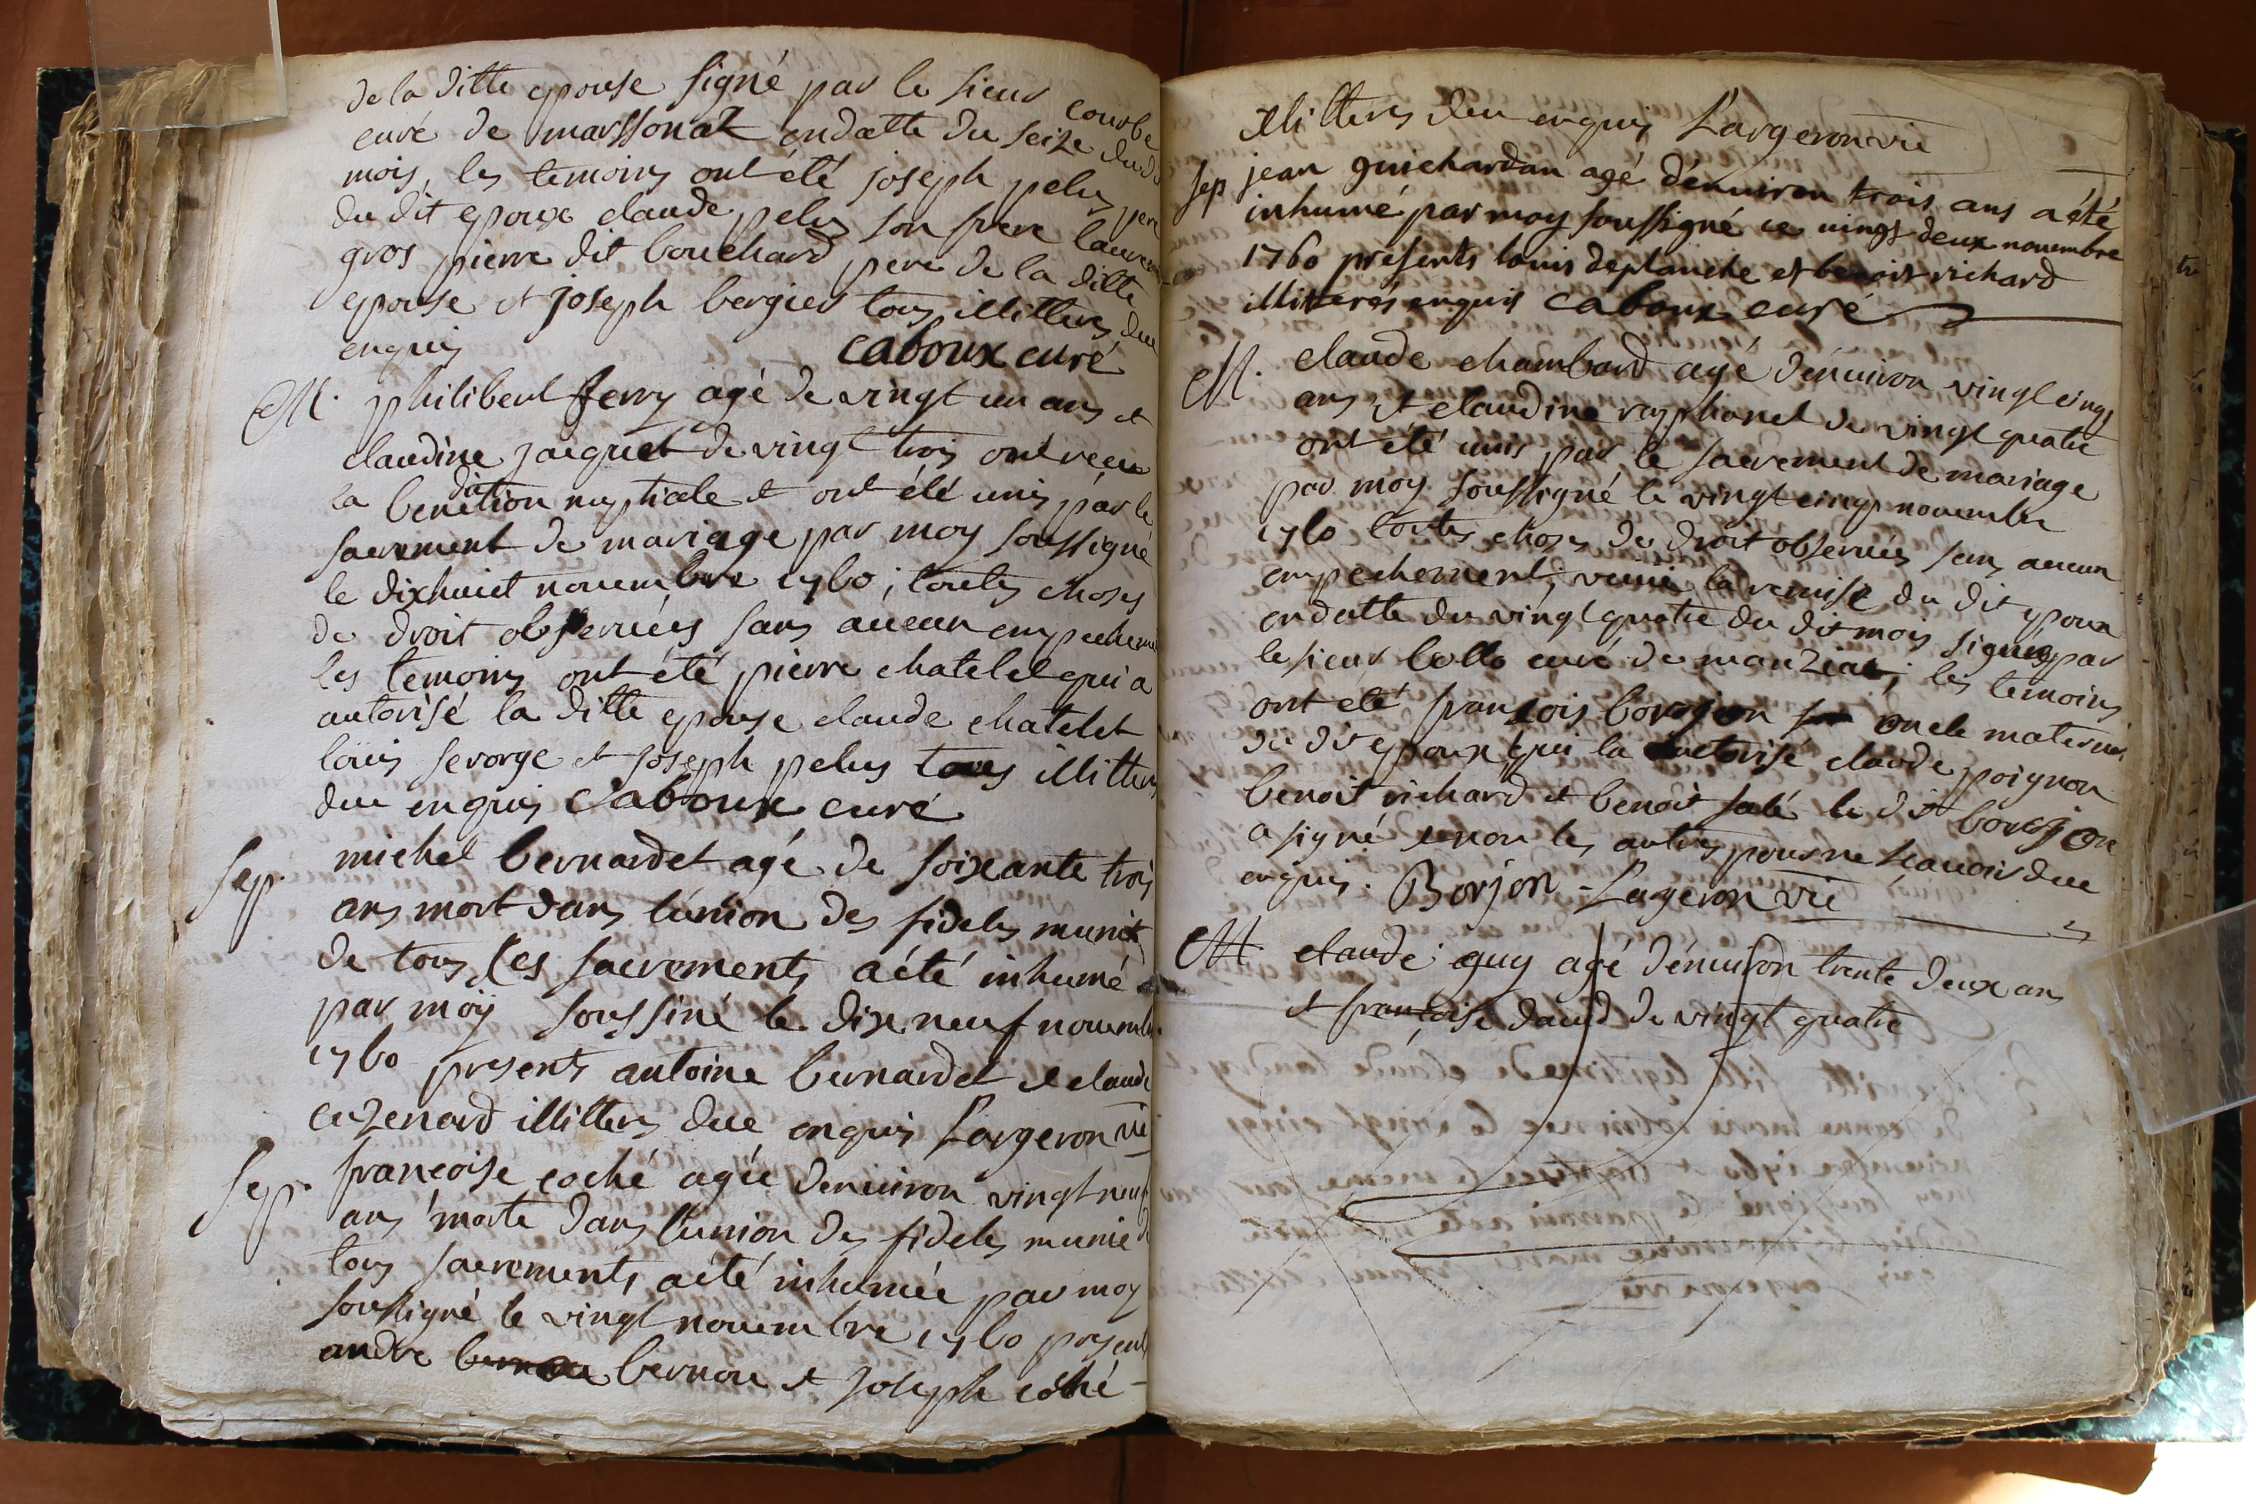 de la ditte epouse signé par le sieur courbe
curé de marssonat endatte du seize dud
mois, les temoins ont été joseph pelus pere
du dit epoux claude pelus son frere laurent
gros pierre dit bouchard pere de la ditte
epouse et joseph bergier tous illitters due
enquis caboux curé
M. philibert ferry agé de vingt un ans et
claudine jacquet de vingt trois ont recu
la benedition nuptiale et ont été unis par le
sacrement de mariage par moy soussigné
le dixhuict novembre 1760; toutes choses
de droit observées sans aucun empecheme
les temoins ont été pierre chatelet qui a
autorisé la ditte epouse claude chatelet
louis sevorge et joseph pelus tous illitters
due enquis caboux curé
Sep. michel bernardet agé de soixante trois
ans mort dans l'union des fideles munit
de tous ses sacrements a été inhumé
par moy soussiné le dix neuf novembre
1760 presents antoine bernardet et claude
cuzenard illitters due enquis Largeron vic
Sep. francoise coché agée denviron vingt neuf
ans morte dans l'union des fideles munie de
tous sacrements a été inhumée par moy
soussigné le vingt novembre 1760 presents
andre bernou et joseph coché
illitters due enquis Largeron vic
Sep jean guichardan agé d'environ trois ans a été
inhumé par moy soussigné ce vingt deux novembre
1760 présents louis deplanche et benoit richard
illitterés enquis caboux curé
M. claude chambard agé d'environ vingt cinq
ans et claudine rayphanel de vingt quatre
ont été unis par le sacrement de mariage
par moy soussigné le vingt cinq novembre
1760 toutes choses de droit observées sans aucun
empechement; veuë la remise du dit epoux
endatte du vingt quatre du dit mois signée par
le sieur collo curé de manziat; les temoins
ont été francois borgeon oncle maternel
du dit epoux qui la autorisé claude poignon
benoit richard et benoit salé le dit borgeon
a signé et non les autres pour ne sçavoir due
enquis. Borjon Largeron vic
M. claude guy agé d'environ trente deux ans
et francoise david de vingt quatre